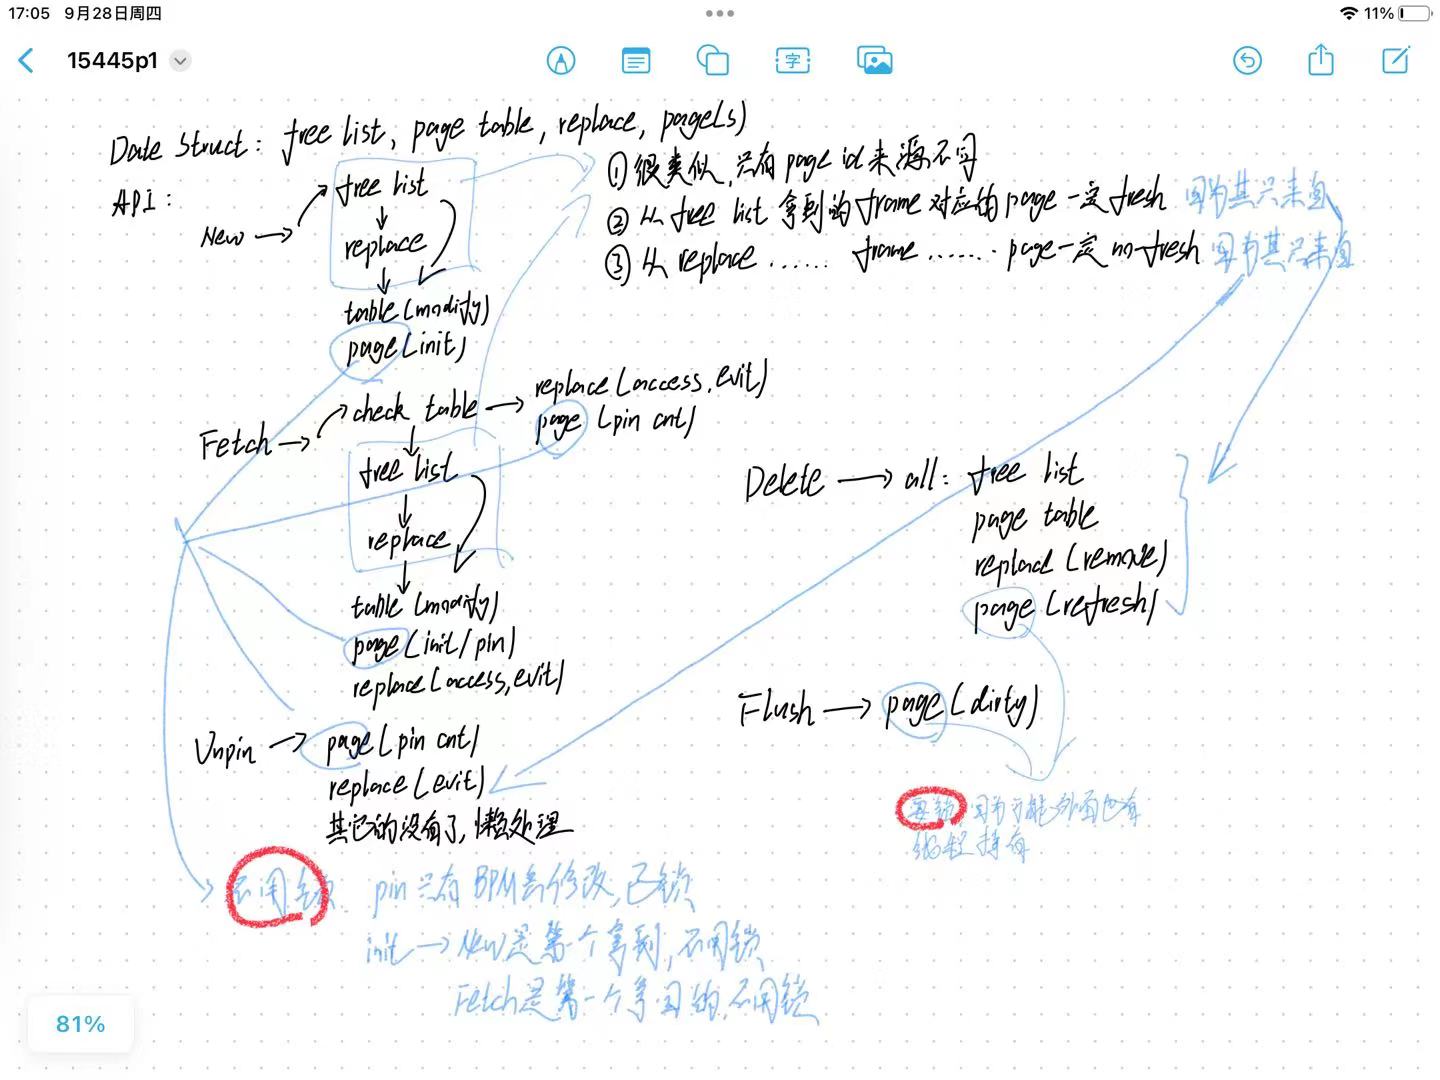 17:05 9月28日周四
11%
15445p1
字
Date Struct: free list, page table, replace, page(s)
API:
New → free list
replace
table (modify)
page (init)
① 很类似,只有 page id 来源不同
② 从 free list 拿到的 frame 对应的 page 一定 fresh 因为其只来自
③ 从 replace ...... frame ....... page一定 no-fresh 因为其只来自
Fetch → check table → replace (access, evit)
page (pin cnt)
free list
replace
table (modify)
page (init/pin)
replace (access, evit)
Unpin → page (pin cnt)
replace (evit)
其它的没有了,懒处理
Delete → all: free list
page table
replace (remove)
page (refresh)
Flush → page (dirty)
要锁,因为可能外面也有
线程持有
不用锁 pin 只有 BPM会修改,已锁
init → New是第一个拿到,不用锁
Fetch是第一个拿到的,不用锁
81%